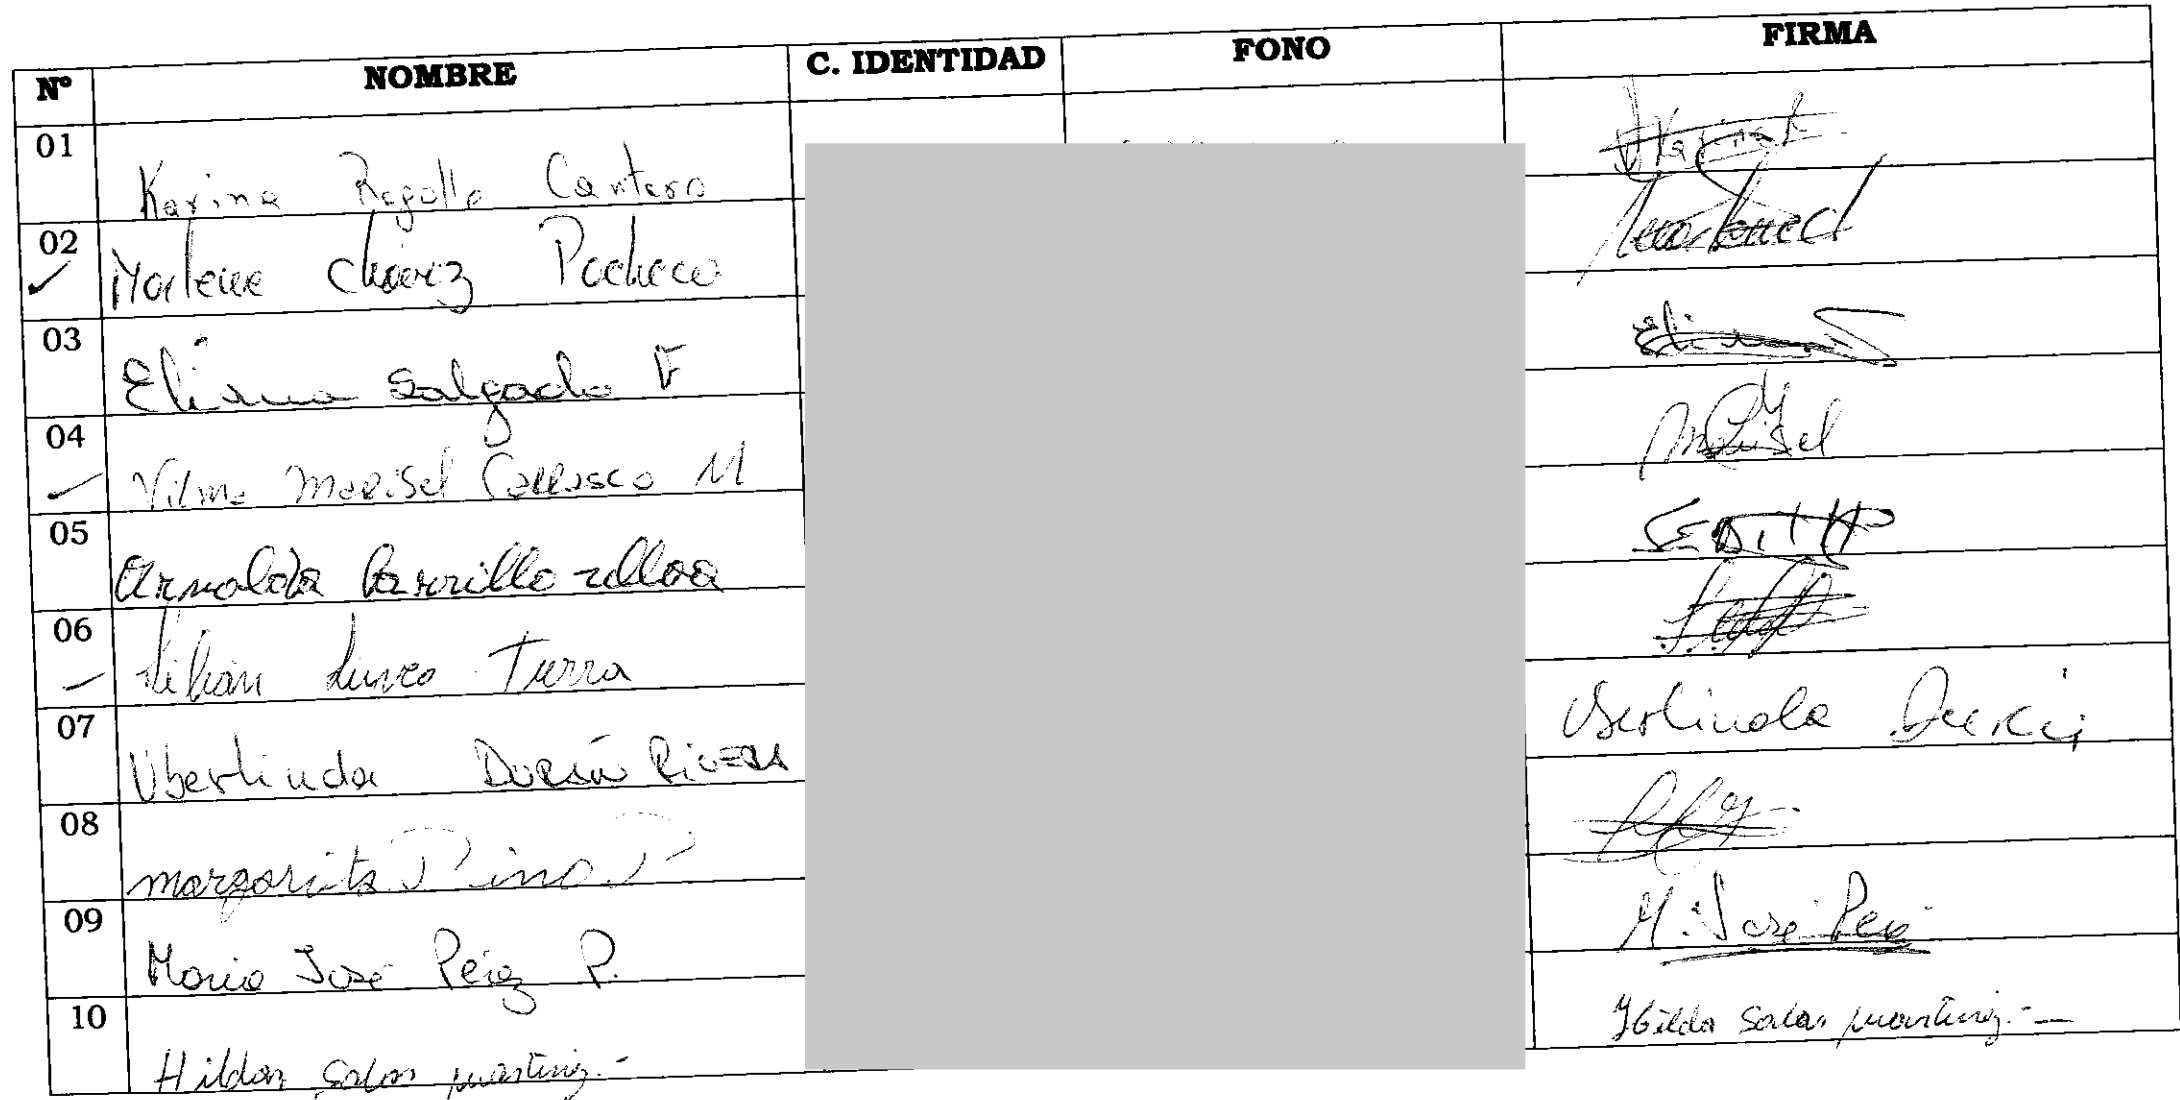 Nº NOMBRE C. IDENTIDAD FONO FIRMA
01 Karina Rogollo Cantero Karina
02 Marlene Chavez Pacheco
03 Eliana Salgado F Eliana
04 Vilma Marisel Carrasco M Marisel
05 Arnalda Carrillo Ulloa EDITH
06 Lilian Turra
07 Uberlinda Durán Rivera Uberlinda Durán
08 margarita Pino P
09 Maria José Pérez P. M. José Pérez
10 Hilda Salas martinez.- Hilda Salas martinez.-